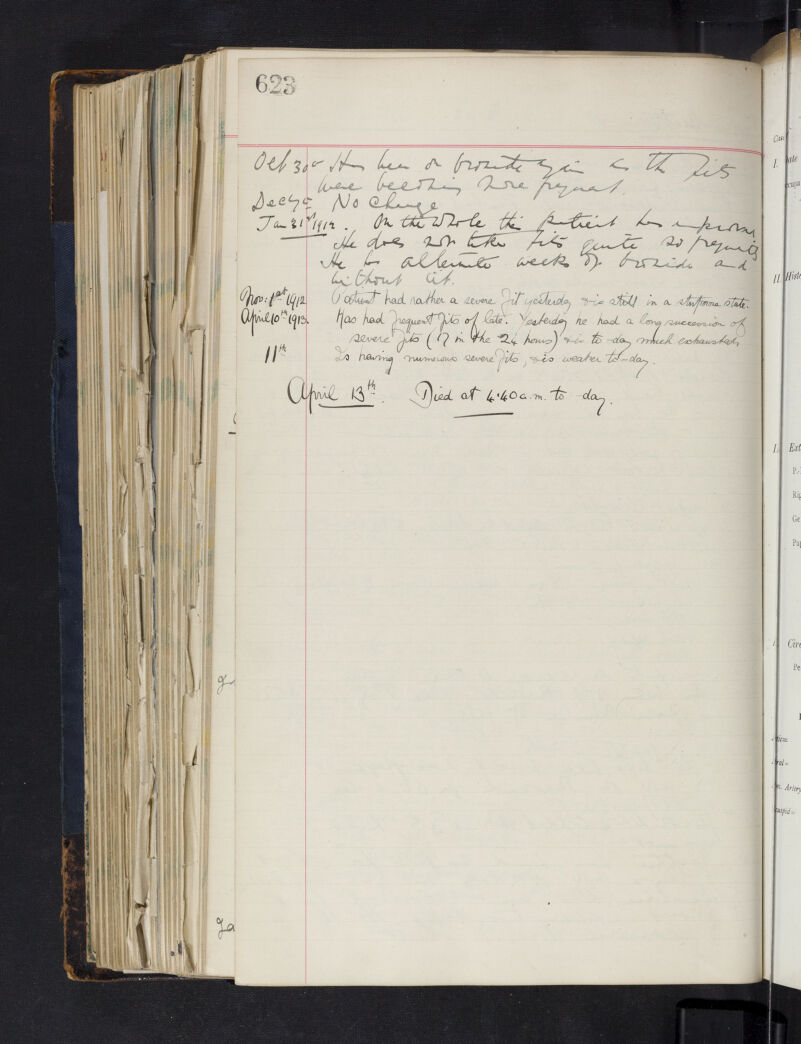 623
Oct 30th Has been on bromide again as the fits
were becoming more frequent.
No Change
Jan 31st 1912. On the Whole this patient has improved
He does not take fits quite so frequently
He has alternate weeks of bromide and
without it.
Nov: 1st 1912. Patient had rather a severe fit yesterday & is still in a stuporose state.
April 10th 1913. Has had frequent fits of late. Yesterday he had a long succession of
severe fits (17 in the 24 hours) & is to-day much exhausted.
11th Is having numerous severe fits, & is weaker to-day.
April 13th. Died at 4.40 a.m. to-day.